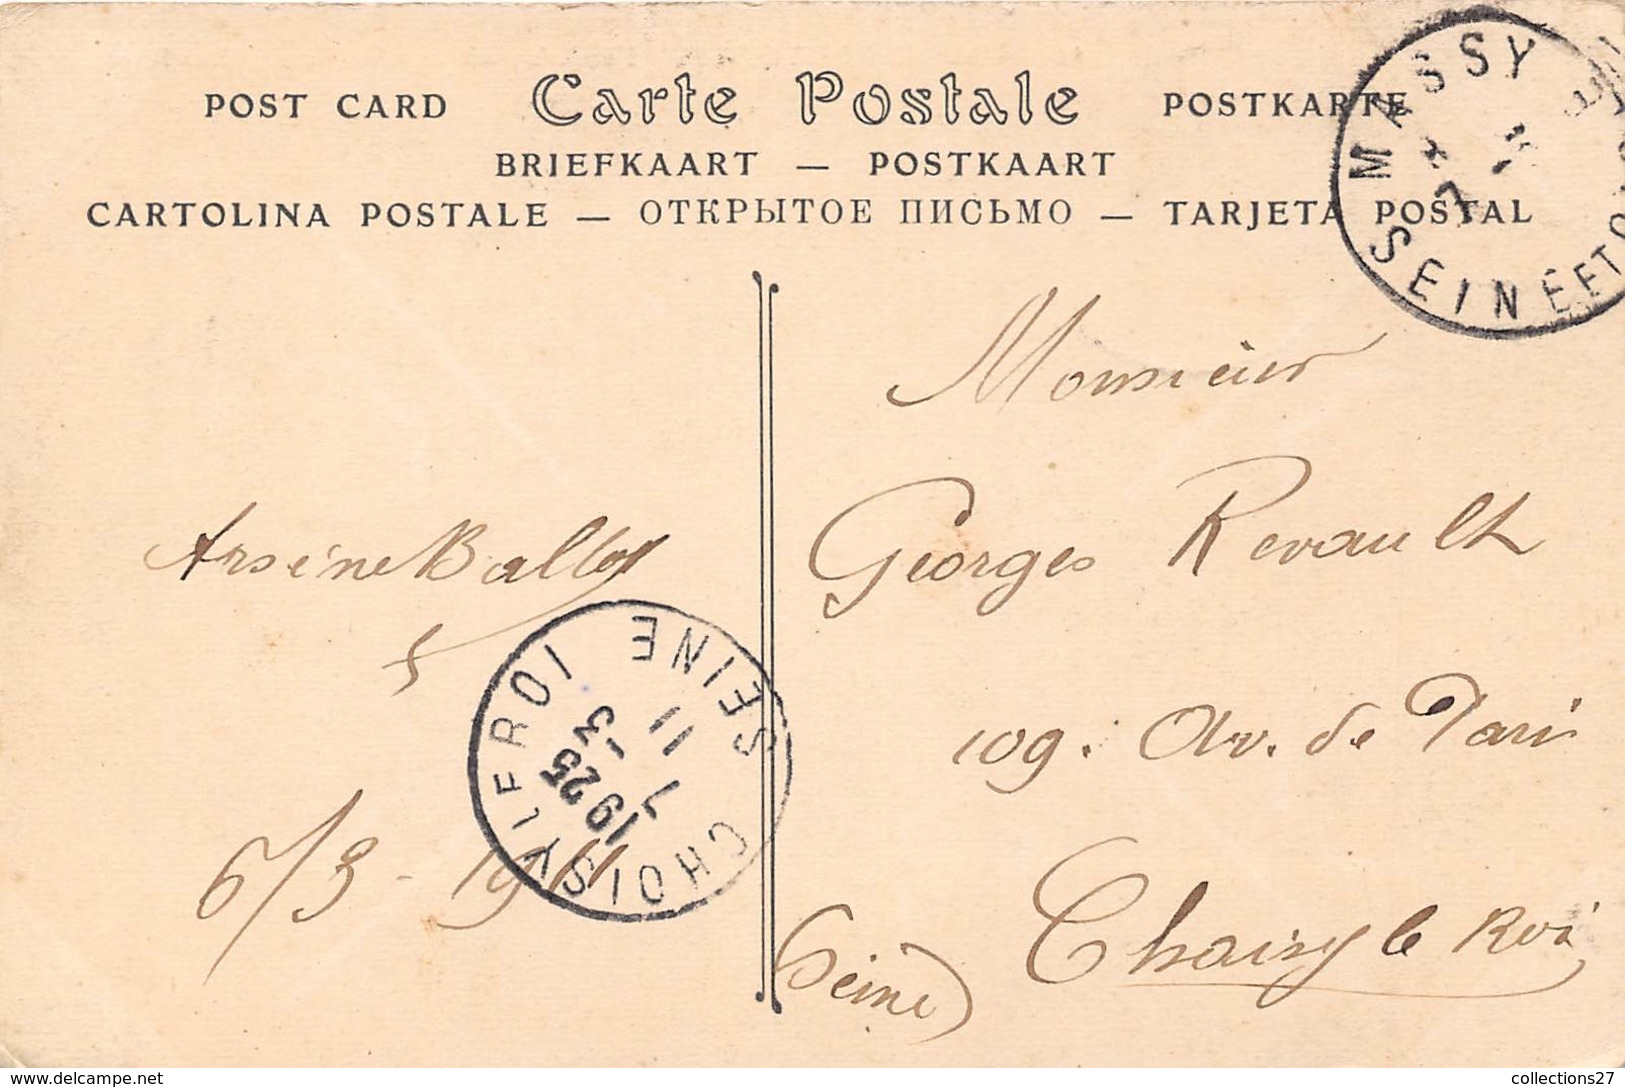 POST CARD Carte Postale POSTKARTE
BRIEFKAART — POSTKAART
CARTOLINA POSTALE — ОТКРЫТОЕ ПИСЬМО — TARJETA POSTAL
MASSY
SEINE ET O
Monsieur
Georges Revault
109. Av. de Paris
Choisy le Roi
(Seine)
Arsène
6/3 - 1911
CHOISY LE ROI SEINE
1925
7 - 3
11
collections27